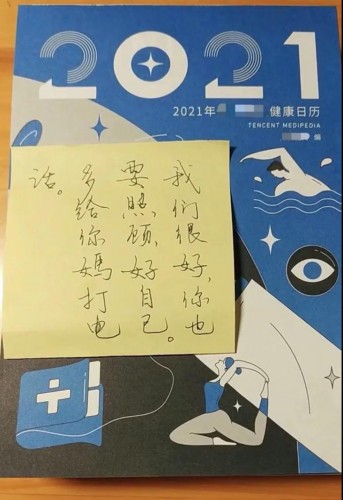 2021
2021年 健康日历
TENCENT MEDIPEDIA
我们很好,你也
要照顾好自己。
多给你媽打电
话。